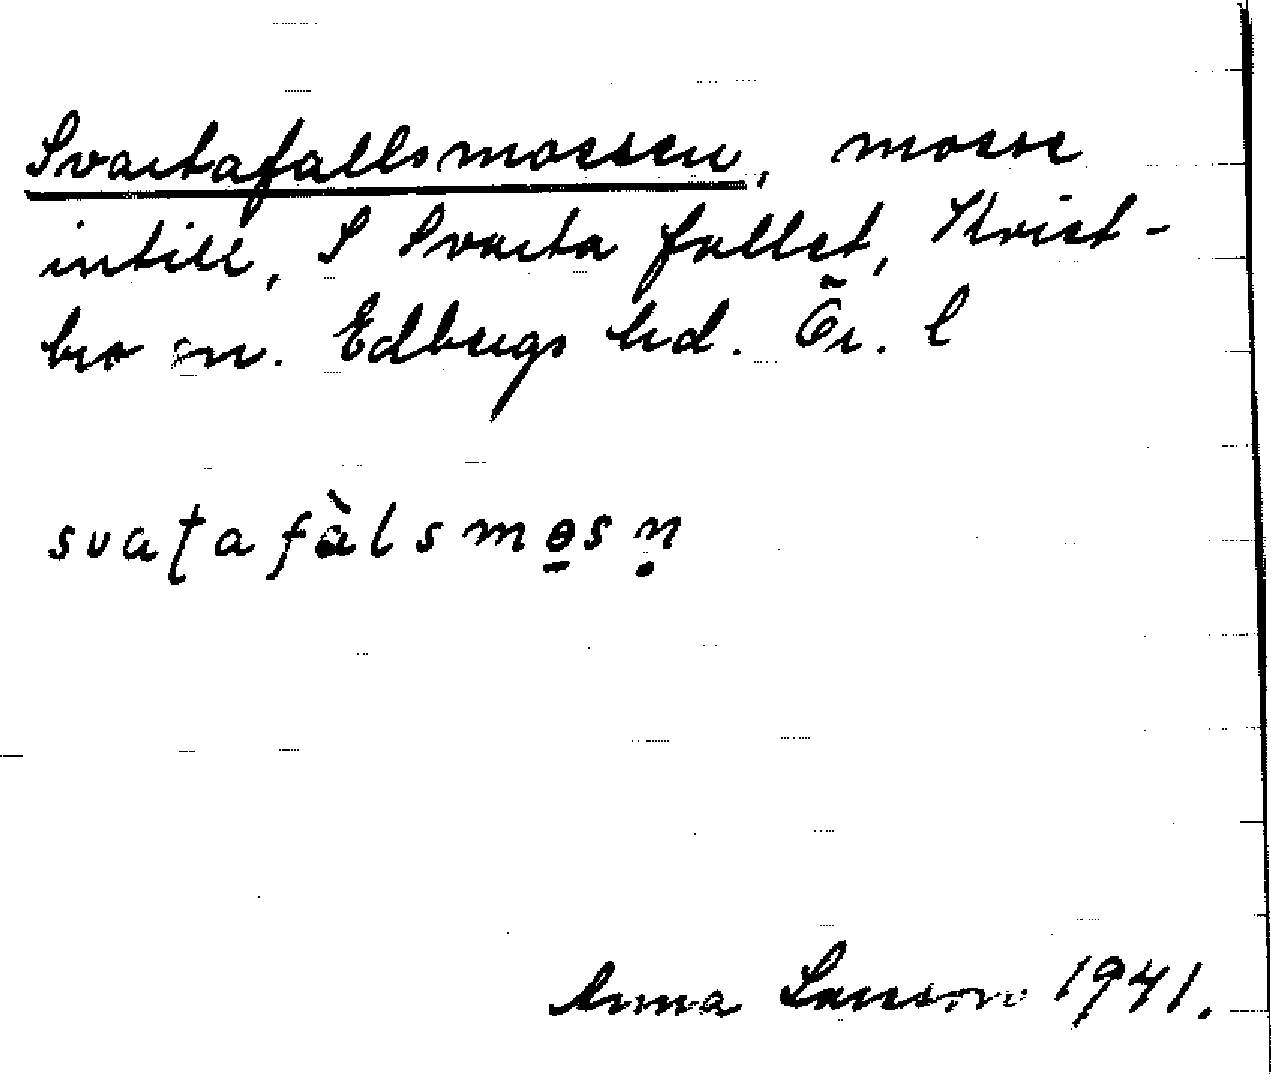 Svartafallsmossen, mosse
intill, S Svarta fallet, Kvist-
bro sn. Edbergs hd. Ör. l
svaʈafàlsmɵ̱sṇ
Anna Larsson 1941.